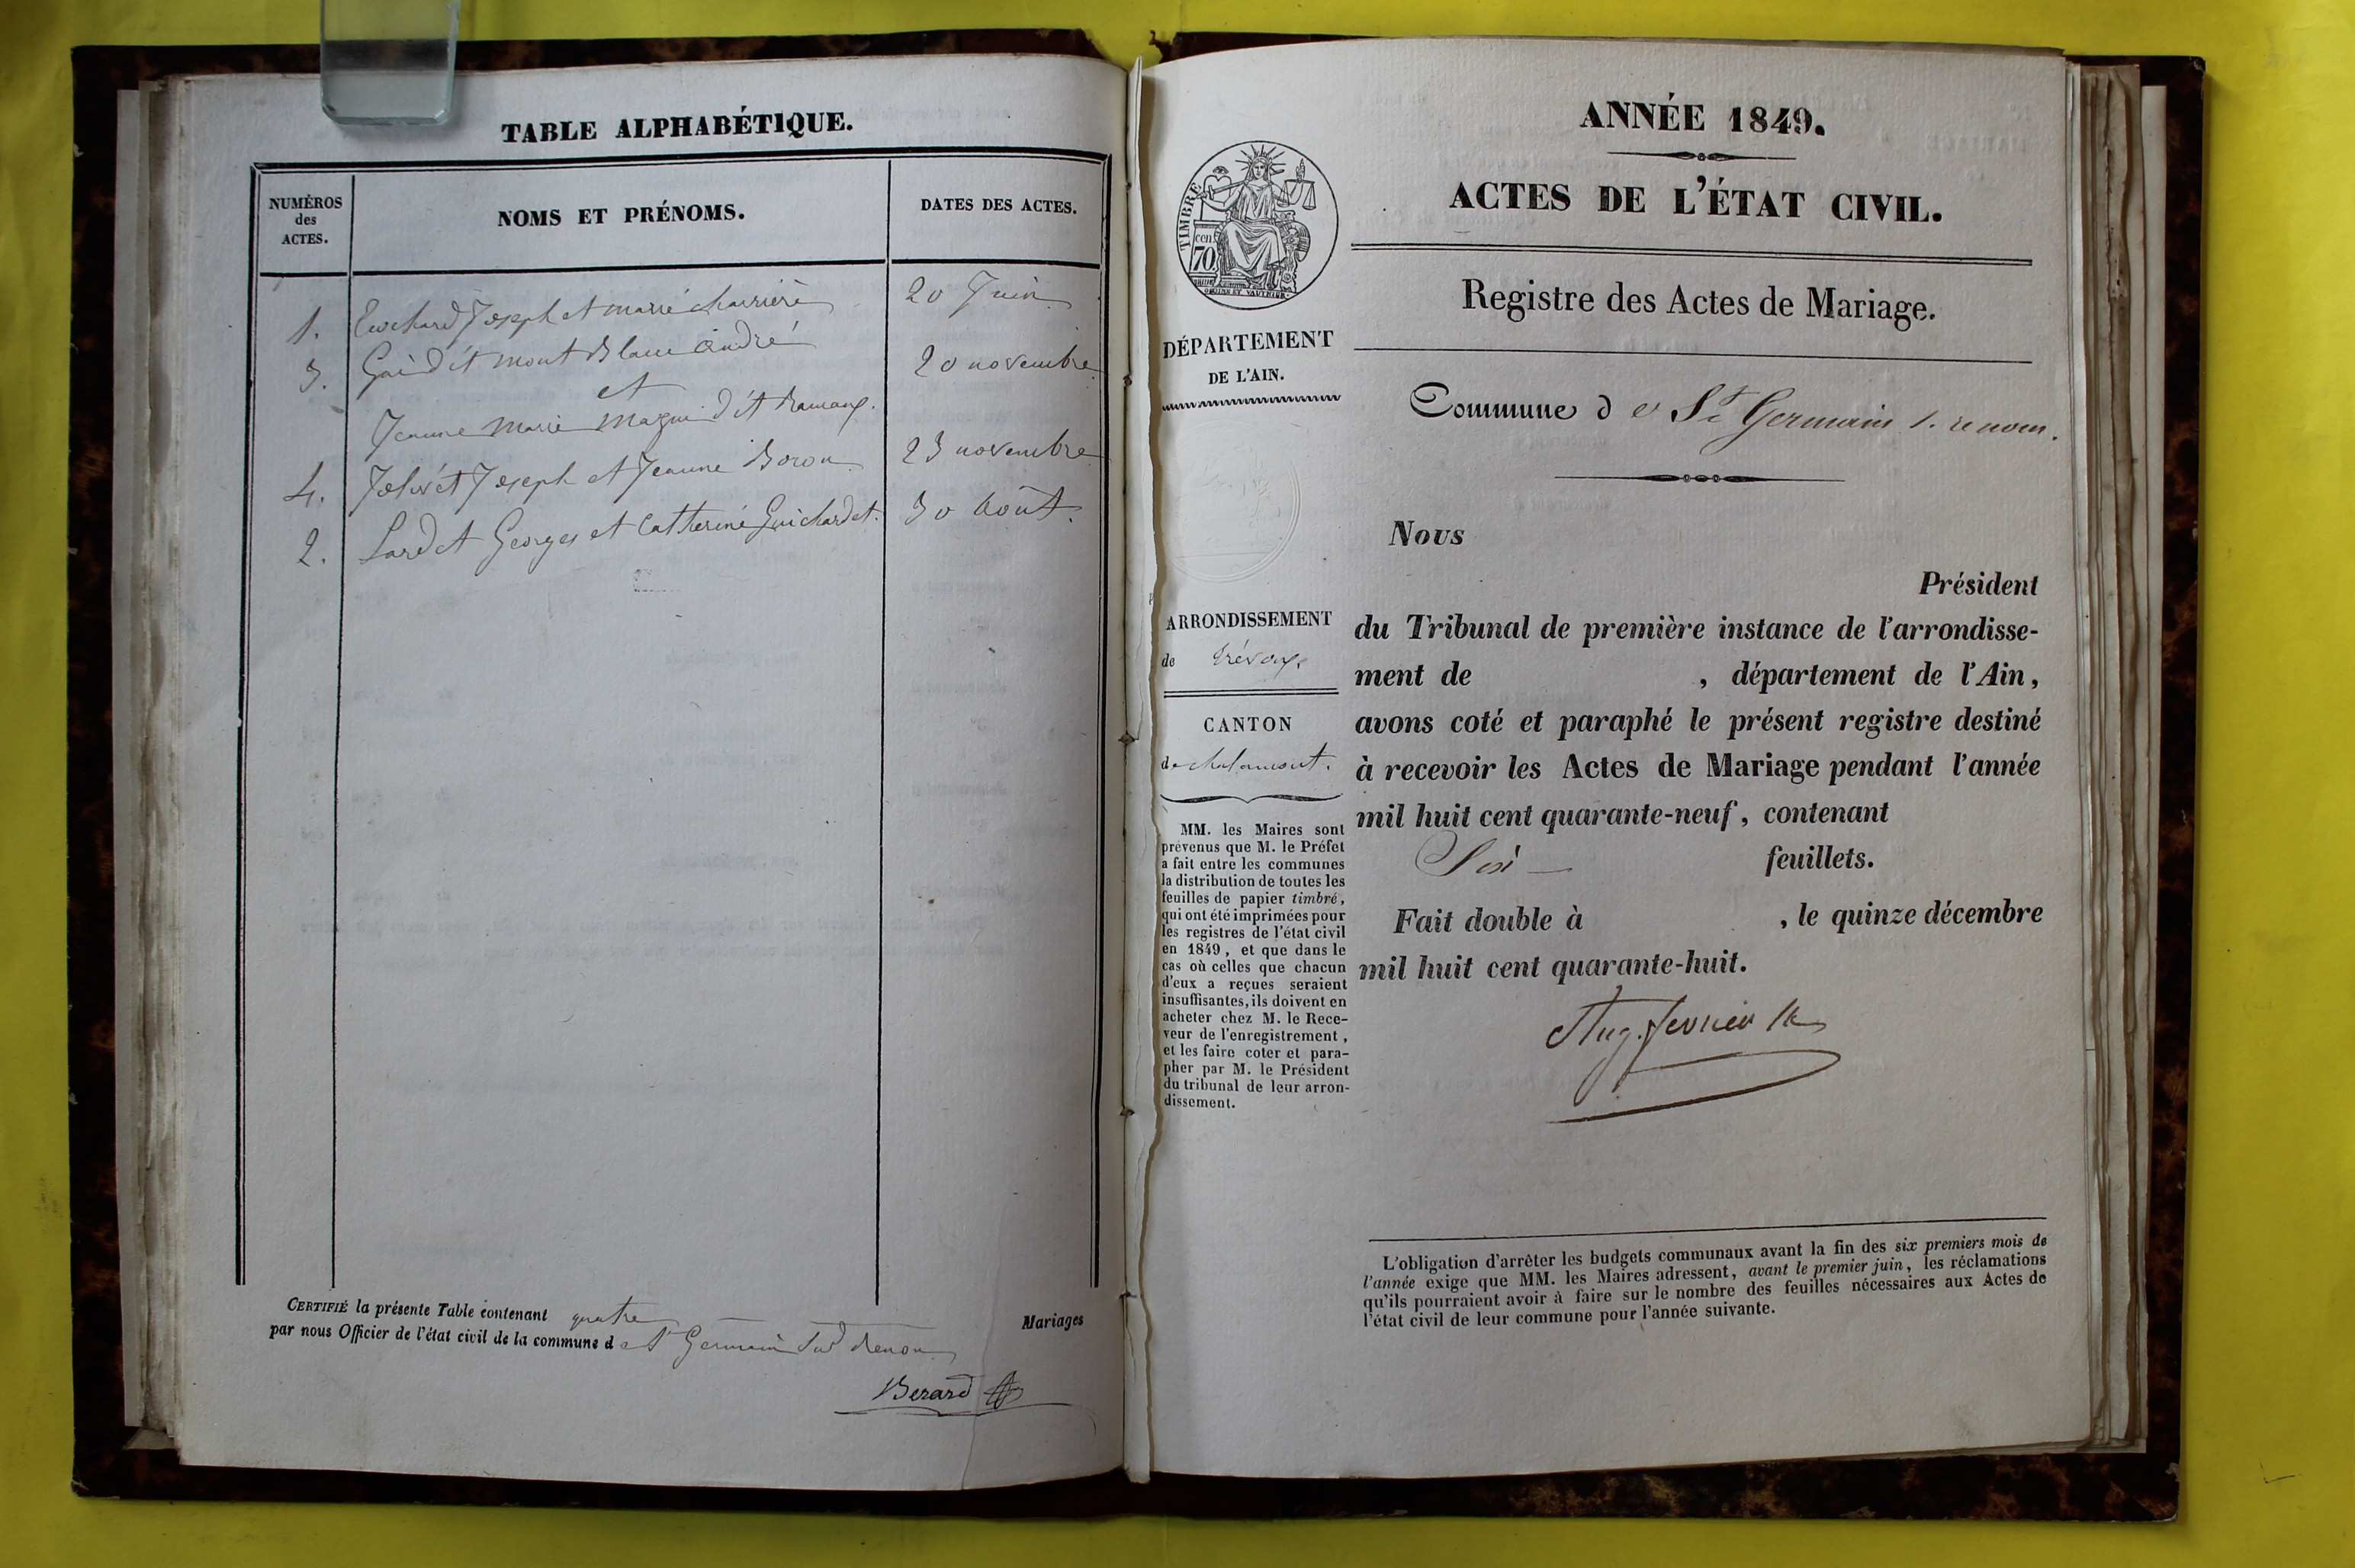 TABLE ALPHABÉTIQUE.
NUMÉROS des ACTES.
NOMS ET PRÉNOMS.
DATES DES ACTES.
1. Joseph et marie charrière 20 Juin
3. Gui dit mont Blanc André 20 novembre
et
Jeanne Marie dit Ramaux.
4. Joseph et Jeanne Boron 23 novembre
2. Lardet Georges et Catherine Guichardet. 30 Août.
CERTIFIÉ la présente Table contenant quatre Mariages
par nous Officier de l'état civil de la commune de St Germain Sur Renon
Berard
ANNÉE 1849.
ACTES DE L'ÉTAT CIVIL.
Registre des Actes de Mariage.
TIMBRE
cen.
70.
DÉPARTEMENT
DE L'AIN.
Commune de St Germain s. renom.
Nous
Président
du Tribunal de première instance de l'arrondisse-
ment de , département de l'Ain,
avons coté et paraphé le présent registre destiné
à recevoir les Actes de Mariage pendant l'année
mil huit cent quarante-neuf, contenant
Six feuillets.
Fait double à , le quinze décembre
mil huit cent quarante-huit.
ARRONDISSEMENT
de Trévoux
CANTON
de chalamont.
MM. les Maires sont
prévenus que M. le Préfet
a fait entre les communes
la distribution de toutes les
feuilles de papier timbré,
qui ont été imprimées pour
les registres de l'état civil
en 1849, et que dans le
cas où celles que chacun
d'eux a reçues seraient
insuffisantes, ils doivent en
acheter chez M. le Rece-
veur de l'enregistrement,
et les faire coter et para-
pher par M. le Président
du tribunal de leur arron-
dissement.
L'obligation d'arrêter les budgets communaux avant la fin des six premiers mois de
l'année exige que MM. les Maires adressent, avant le premier juin, les réclamations
qu'ils pourraient avoir à faire sur le nombre des feuilles nécessaires aux Actes de
l'état civil de leur commune pour l'année suivante.